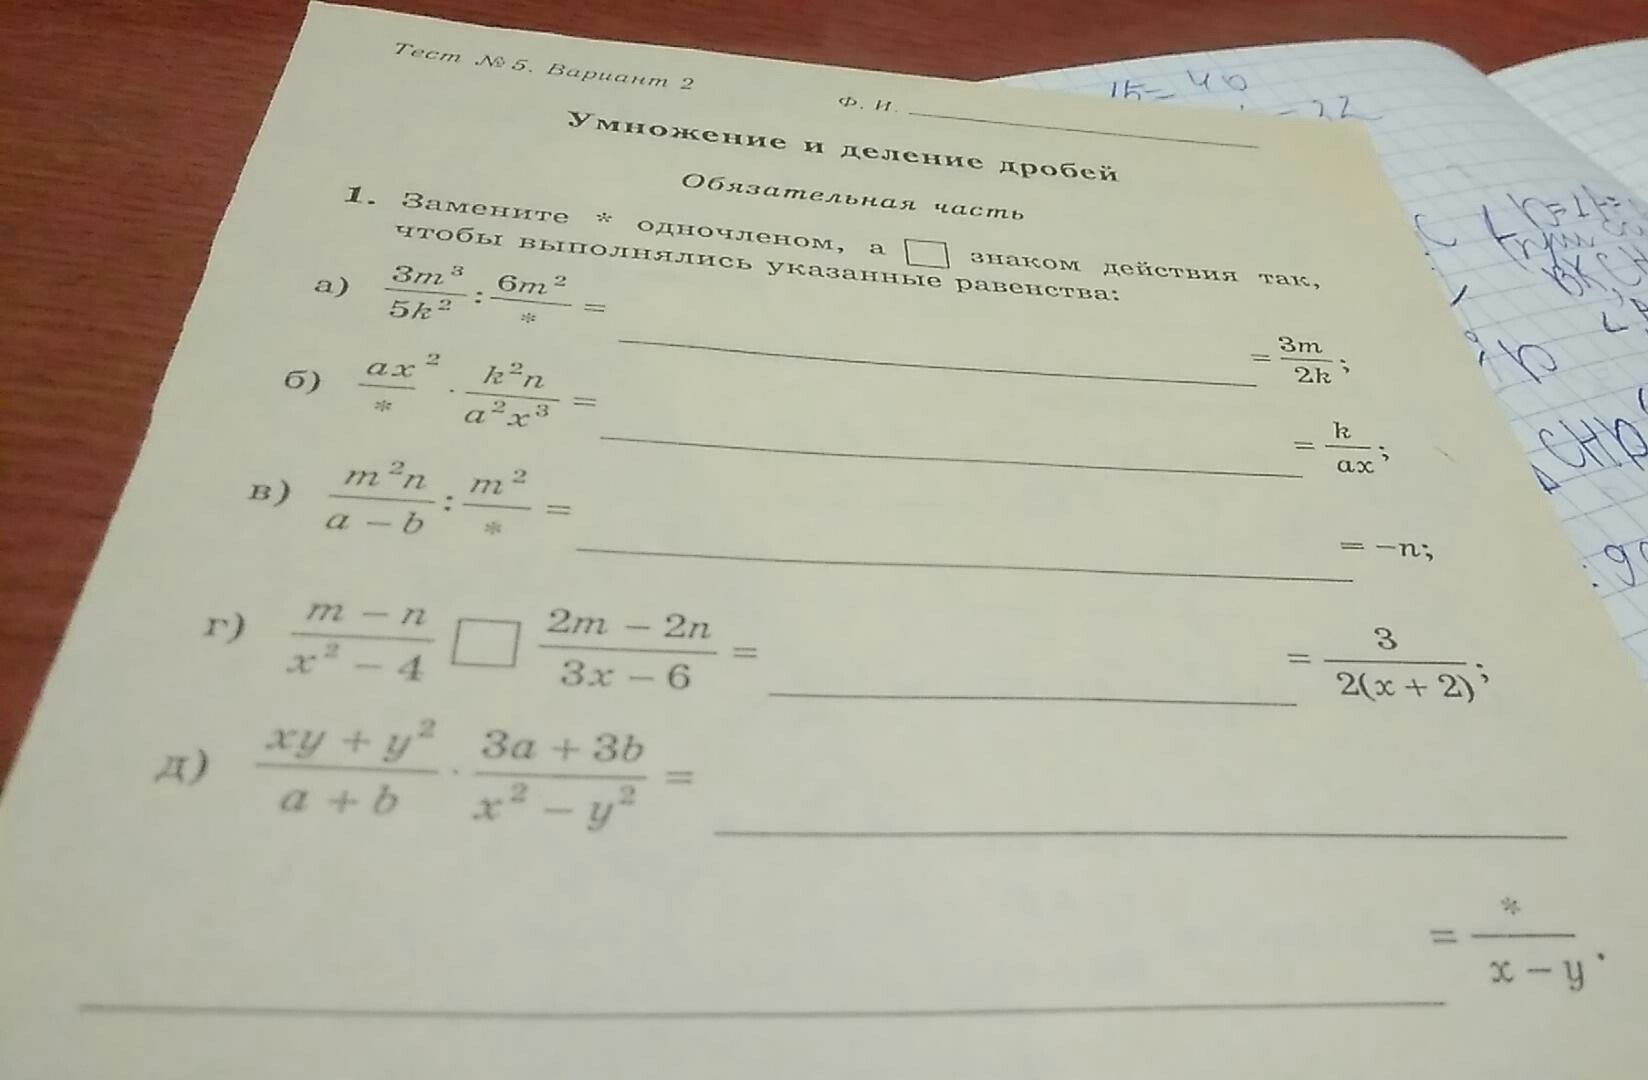 Тест № 5. Вариант 2
Ф. И.
Умножение и деление дробей
Обязательная часть
1. Замените * одночленом, а □ знаком действия так,
чтобы выполнялись указанные равенства:
а) 3m³/5k² : 6m²/* = ____ = 3m/2k;
б) ax²/* · k²n/a²x³ = ____ = k/ax;
в) m²n/(a − b) : m²/* = ____ = −n;
г) (m − n)/(x² − 4) □ (2m − 2n)/(3x − 6) = ____ = 3/(2(x + 2));
д) (xy + y²)/(a + b) · (3a + 3b)/(x² − y²) = ____
____ = */(x − y).
15= 40
=22